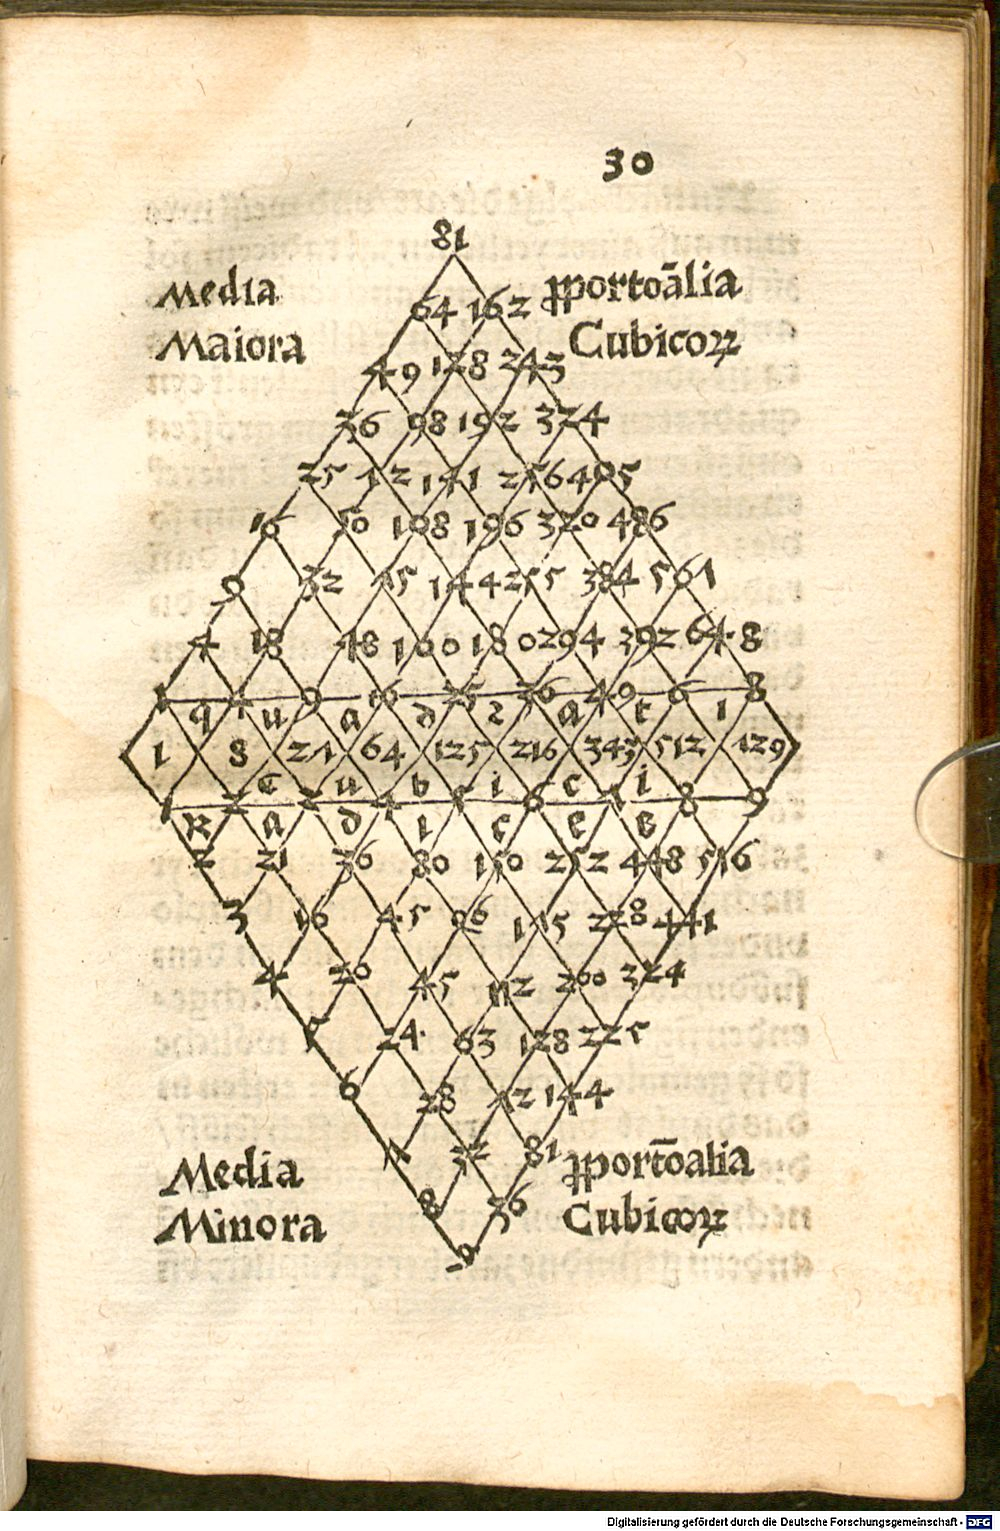 30
81
Media
64 162
ꝓportoālia
Maiora
Cubicoꝝ
49 128 243
36 98 192 324
25 72 141 256 405
16 50 108 196 320 486
9 32 75 144 255 384 567
4 18 48 100 180 294 392 648
1 4 9 16 25 36 49 6 8
q u a d 2 a t i
1 8 27 64 125 216 343 512 729
c u b i c i
1 2 3 4 5 6 7 8 9
R a d i c e s
2 21 36 80 150 252 448 516
3 16 45 96 115 228 441
4 20 45 112 200 324
5 24 63 128 225
6 28 72 144
7 32 81
Media
ꝓportōalia
8 36
Minora
Cubicoꝝ
9
Digitalisierung gefördert durch die Deutsche Forschungsgemeinschaft - DFG